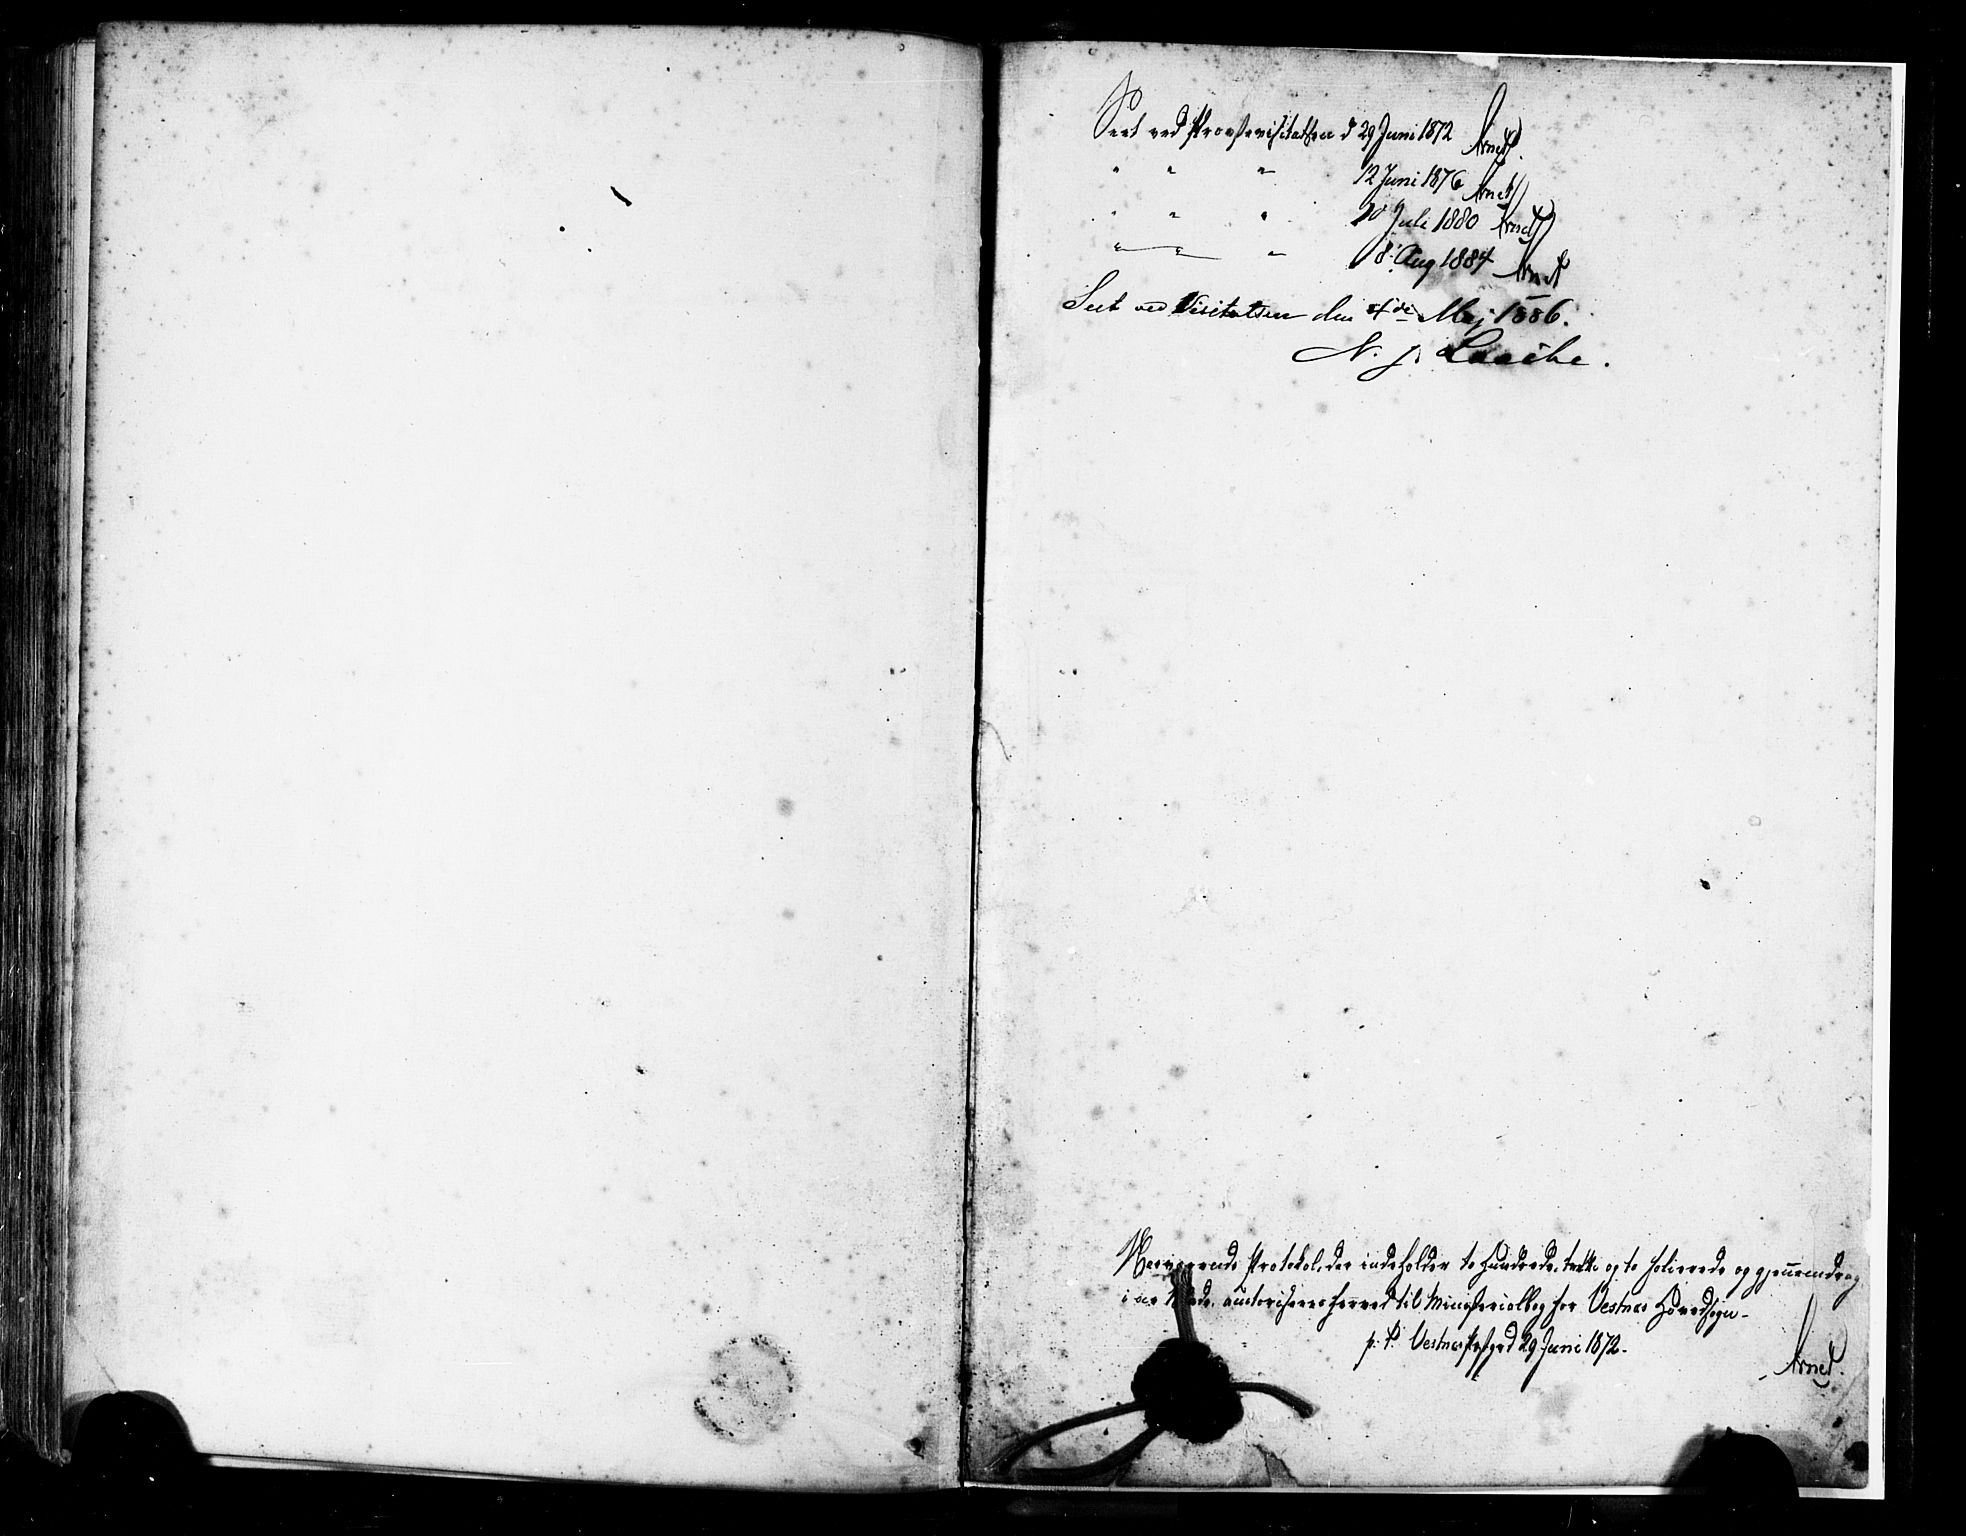 Seet ved Provstevisitatsen d 29 Juni 1872 Arnet.
" " " 12 Juni 1876 Arnet
" " " Juli 1880 Arnet
" " " 8' Aug 1884 Arnet
Seet ved Visitatsen den 4de Maj 1886.
N. J. Laache.
Nærværende Protokol, der indeholder to Hundrede, og to folierede og gjennemdrag
ne Blade, autoriseres herved til Ministerialbog for Vestnes Hovedsogn.
p. t. Vestnes Prstgrd 29 Juni 1872.
Arnet.